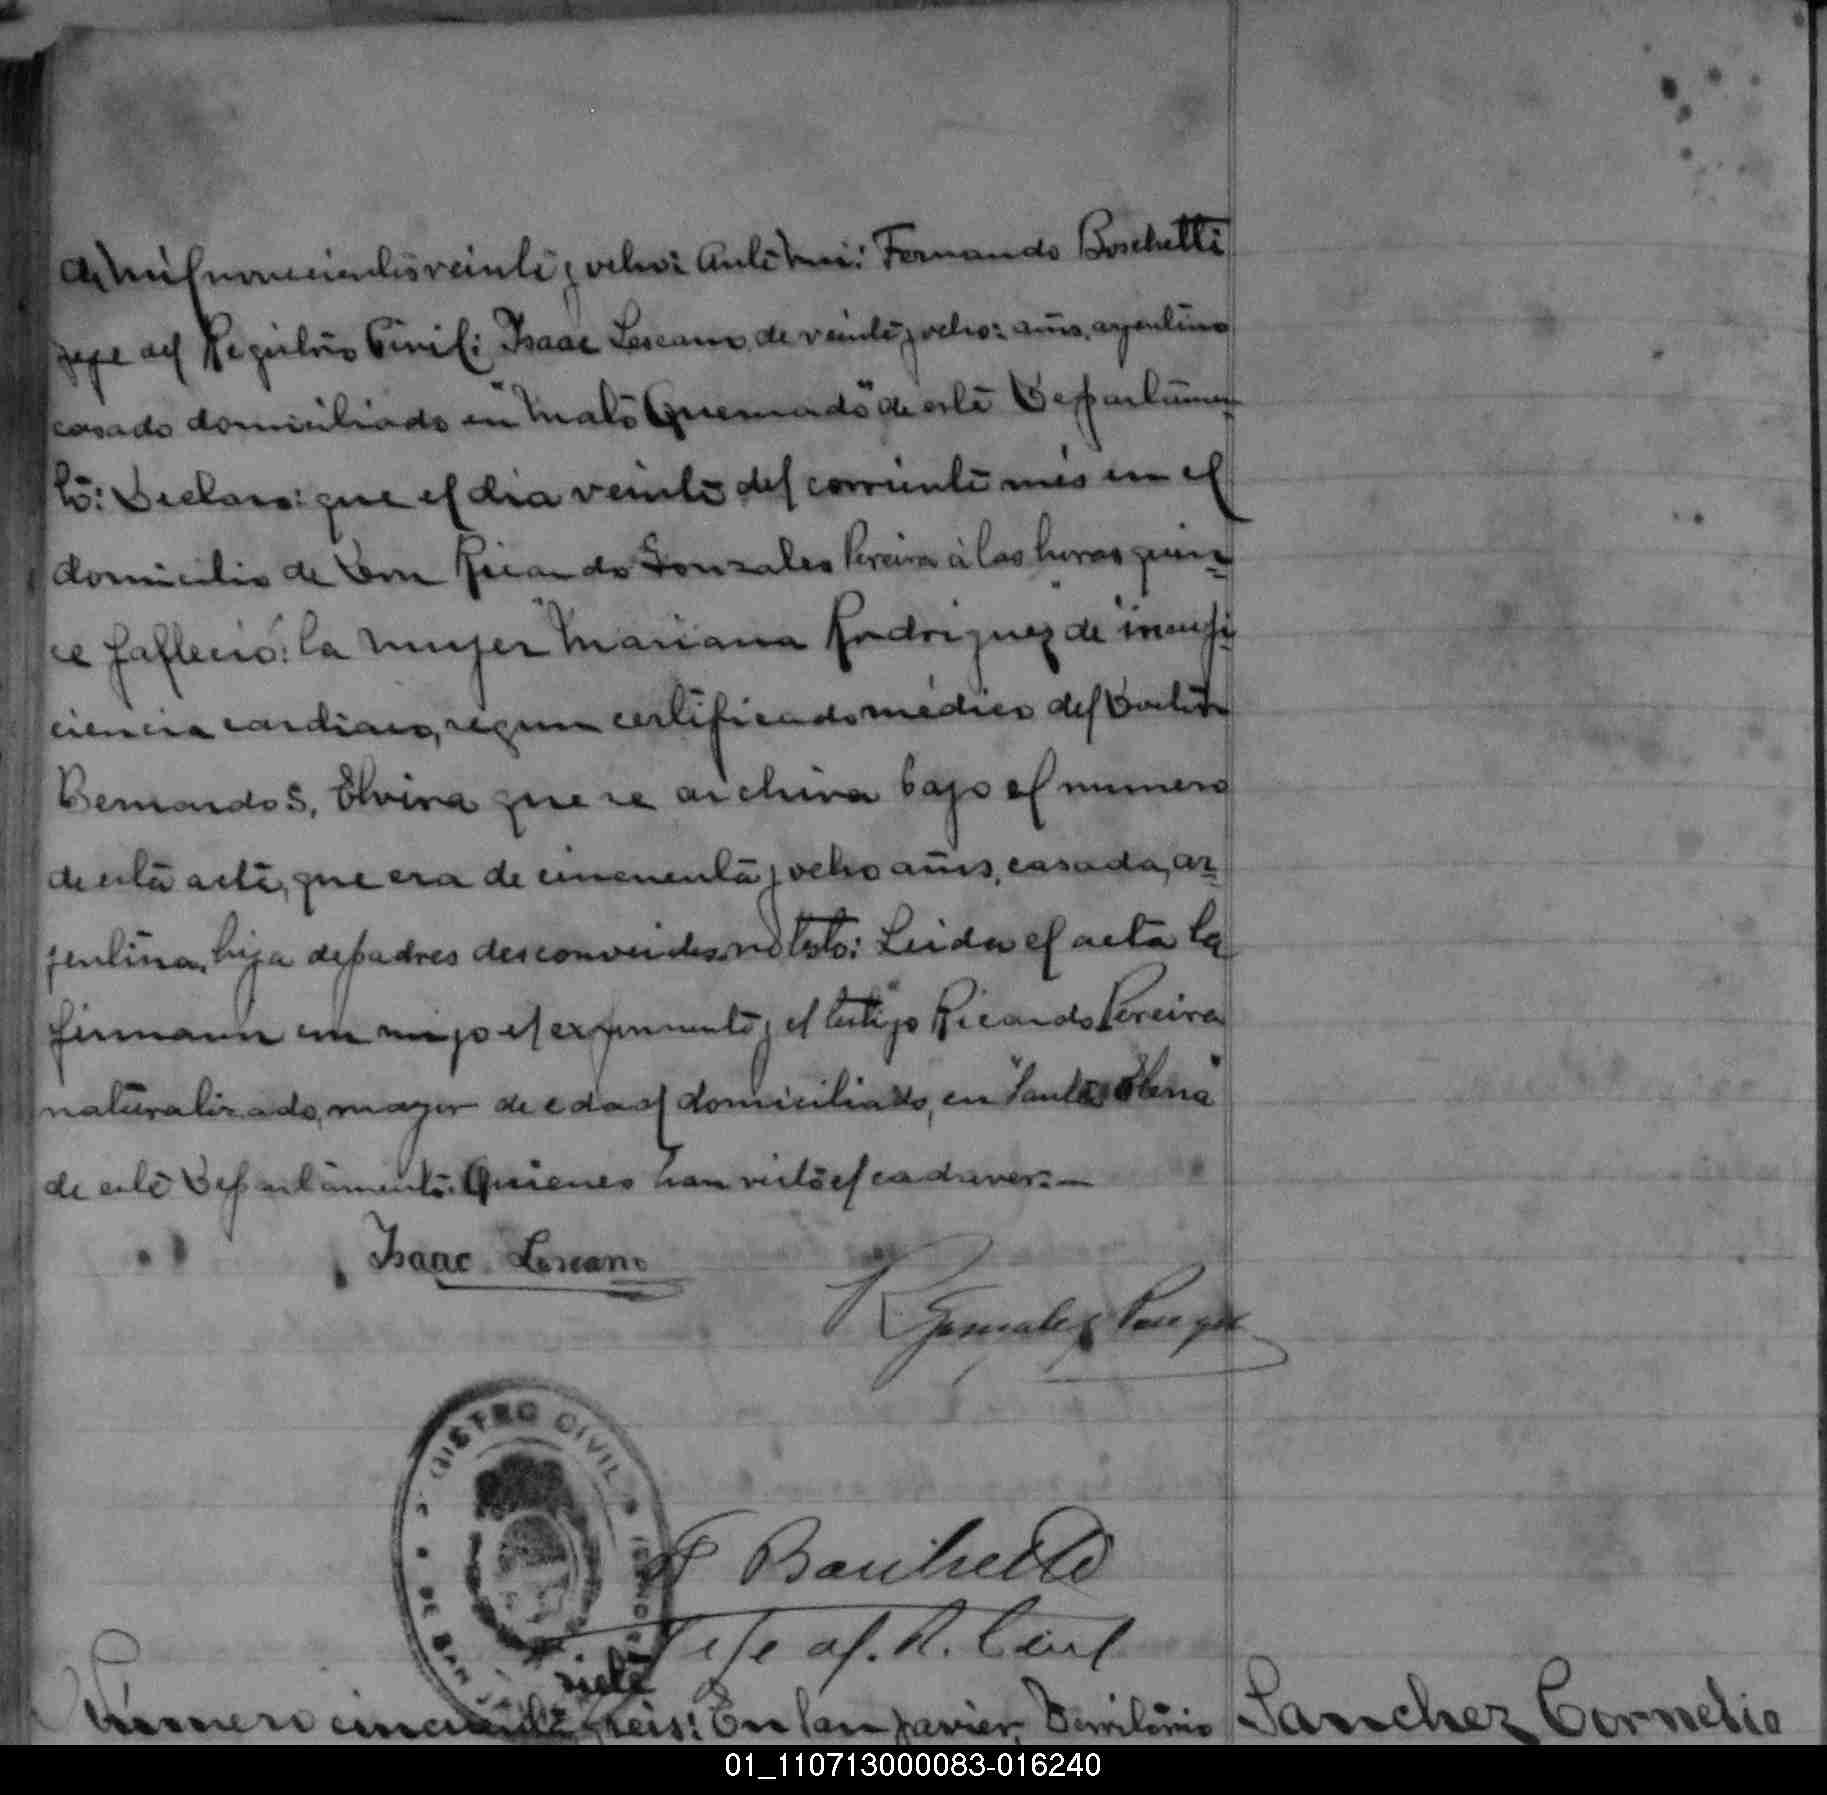 de mil novecientos veinte y ocho: Ante mi: Fernando Boschetti
jefe del Registro Civil: Isaac Lescano, de veinte y ocho: años, argentino
casado domiciliado en "Mato Quemado" de este Departamen-
to: Declaro: que el dia veinte del corriente més en el
domicilio de Don Ricardo Gonzales Pereira à las horas quin=
ce fallecio: la mujer "Mariana Rodriguez" de insufi=
ciencia cardiaca, segun certificado médico del Doctor
Bernardo S. Elvira que se archiva bajo el numero
de esta acta, que era de cincuenta y ocho años, casada, ar=
jentina, hija de padres desconocidos, no testo: Leida el acta la
firmaron con migo el exponente y el testigo Ricardo Pereira
naturalizado, mayor de edad domiciliado, en "Santa Elena"
de este Departamento. Quienes han visto el cadaver:—
Isaac Lescano
R Gonzalez
REGISTRO CIVIL
DE SAN
F Boschetti
Jefe del R. Civil
siete
Número cincuenta y seis: En San Javier, Territorio
Sanchez Cornelio
01_110713000083-016240